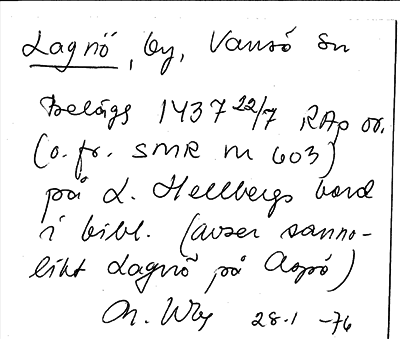 Lagnö, by, Vansö sn
Belägg 1437 22/7 RAp or.
(o. fr. SMR m 603)
på L. Hellbergs bord
i bibl. (avser sanno-
likt Lagnö på Aspö)
28.1 -76